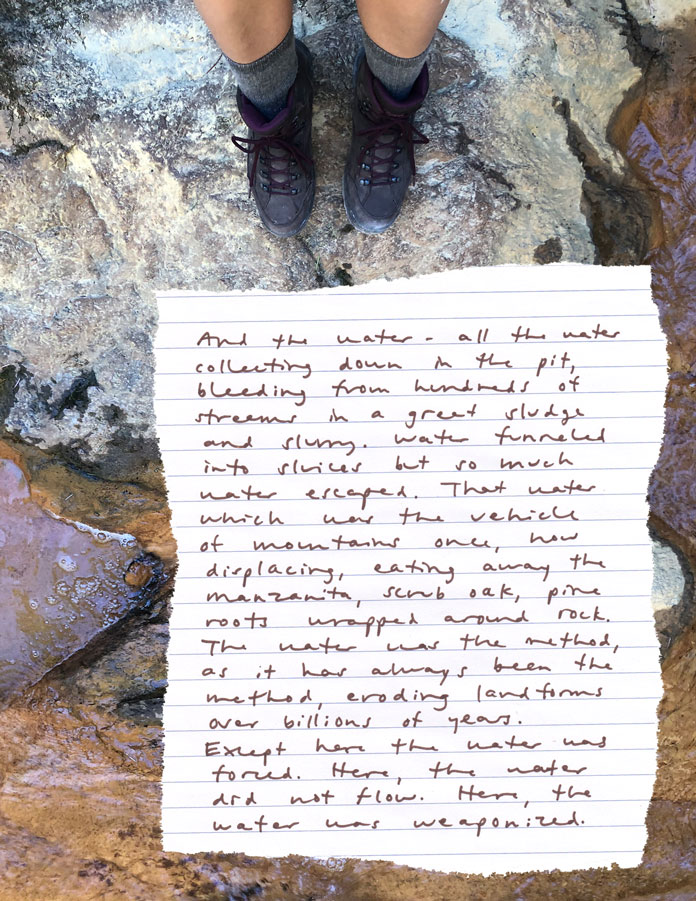 And the water - all the water
collecting down in the pit,
bleeding from hundreds of
streems in a greet sludge
and slurry. Water funneled
into sluices but so much
water escaped. That water
which was the vehicle
of mountains once, now
displacing, eating away the
manzanita, scrub oak, pine
roots wrapped around rock.
The water was the method,
as it has always been the
method, eroding landforms
over billions of years.
Except here the water was
forced. Here, the water
did not flow. Here, the
water was weaponized.